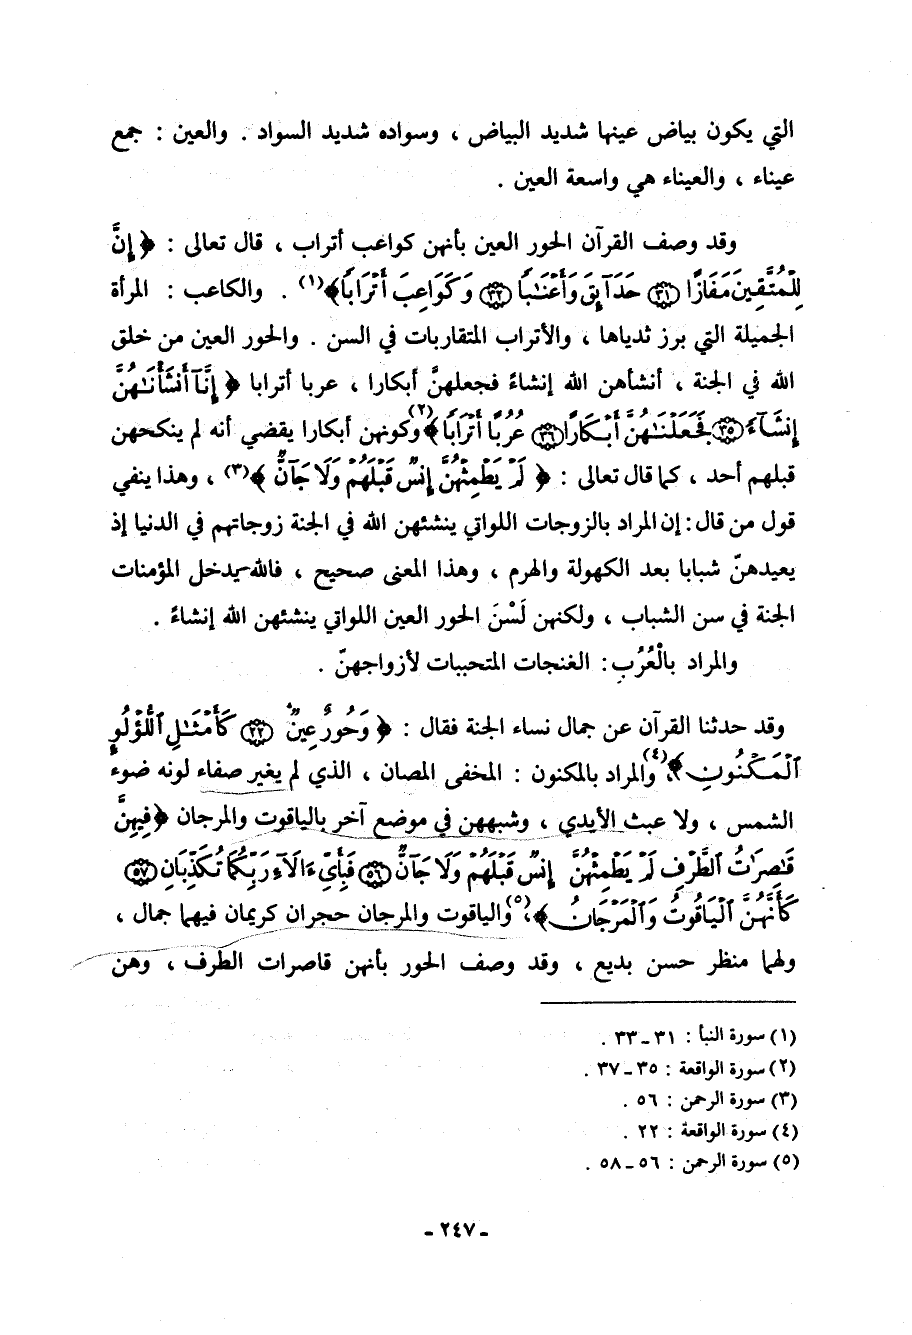 التي يكون بياض عينها شديد البياض ، وسواده شديد السواد . والعين : جمع
عيناء ، والعيناء هي واسعة العين .
وقد وصف القرآن الحور العين بأنهن كواعب أتراب ، قال تعالى : ﴿ إِنَّ
لِلْمُتَّقِينَ مَفَازًا ﴿٣١﴾ حَدَآئِقَ وَأَعْنَٰبًا ﴿٣٢﴾ وَكَوَاعِبَ أَتْرَابًا﴾(١) . والكاعب : المرأة
الجميلة التي برز ثدياها ، والأتراب المتقاربات في السن . والحور العين من خلق
الله في الجنة ، أنشأهن الله إنشاءً فجعلهنَّ أبكارا ، عربا أترابا ﴿ إِنَّآ أَنشَأْنَٰهُنَّ
إِنشَآءً ﴿٣٥﴾ فَجَعَلْنَٰهُنَّ أَبْكَارًا ﴿٣٦﴾ عُرُبًا أَتْرَابًا ﴾(٢) وكونهن أبكارا يقضي أنه لم ينكحهن
قبلهم أحد ، كما قال تعالى : ﴿ لَمْ يَطْمِثْهُنَّ إِنسٌ قَبْلَهُمْ وَلَا جَآنٌّ ﴾(٣) ، وهذا ينفي
قول من قال : إن المراد بالزوجات اللواتي ينشئهن الله في الجنة زوجاتهم في الدنيا إذ
يعيدهنّ شبابا بعد الكهولة والهرم ، وهذا المعنى صحيح ، فالله يدخل المؤمنات
الجنة في سن الشباب ، ولكنهن لَسْنَ الحور العين اللواتي ينشئهن الله إنشاءً .
والمراد بالْعُرُبِ : الغنجات المتحببات لأزواجهنّ .
وقد حدثنا القرآن عن جمال نساء الجنة فقال : ﴿ وَحُورٌ عِينٌ ﴿٢٢﴾ كَأَمْثَٰلِ اللُّؤْلُوِٕ
الْمَكْنُونِ ﴾(٤) ، والمراد بالمكنون : المخفى المصان ، الذي لم يغير صفاء لونه ضوء
الشمس ، ولا عبث الأيدي ، وشبههن في موضع آخر بالياقوت والمرجان ﴿فِيهِنَّ
قَٰصِرَٰتُ الطَّرْفِ لَمْ يَطْمِثْهُنَّ إِنسٌ قَبْلَهُمْ وَلَا جَآنٌّ ﴿٥٦﴾ فَبِأَيِّ ءَالَآءِ رَبِّكُمَا تُكَذِّبَانِ ﴿٥٧﴾
كَأَنَّهُنَّ الْيَاقُوتُ وَالْمَرْجَانُ ﴾(٥) ، والياقوت والمرجان حجران كريمان فيهما جمال ،
ولهما منظر حسن بديع ، وقد وصف الحور بأنهن قاصرات الطرف ، وهن
(١) سورة النبأ : ٣١ – ٣٣ .
(٢) سورة الواقعة : ٣٥ – ٣٧ .
(٣) سورة الرحمن : ٥٦ .
(٤) سورة الواقعة : ٢٢ .
(٥) سورة الرحمن : ٥٦ – ٥٨ .
– ٢٤٧ –